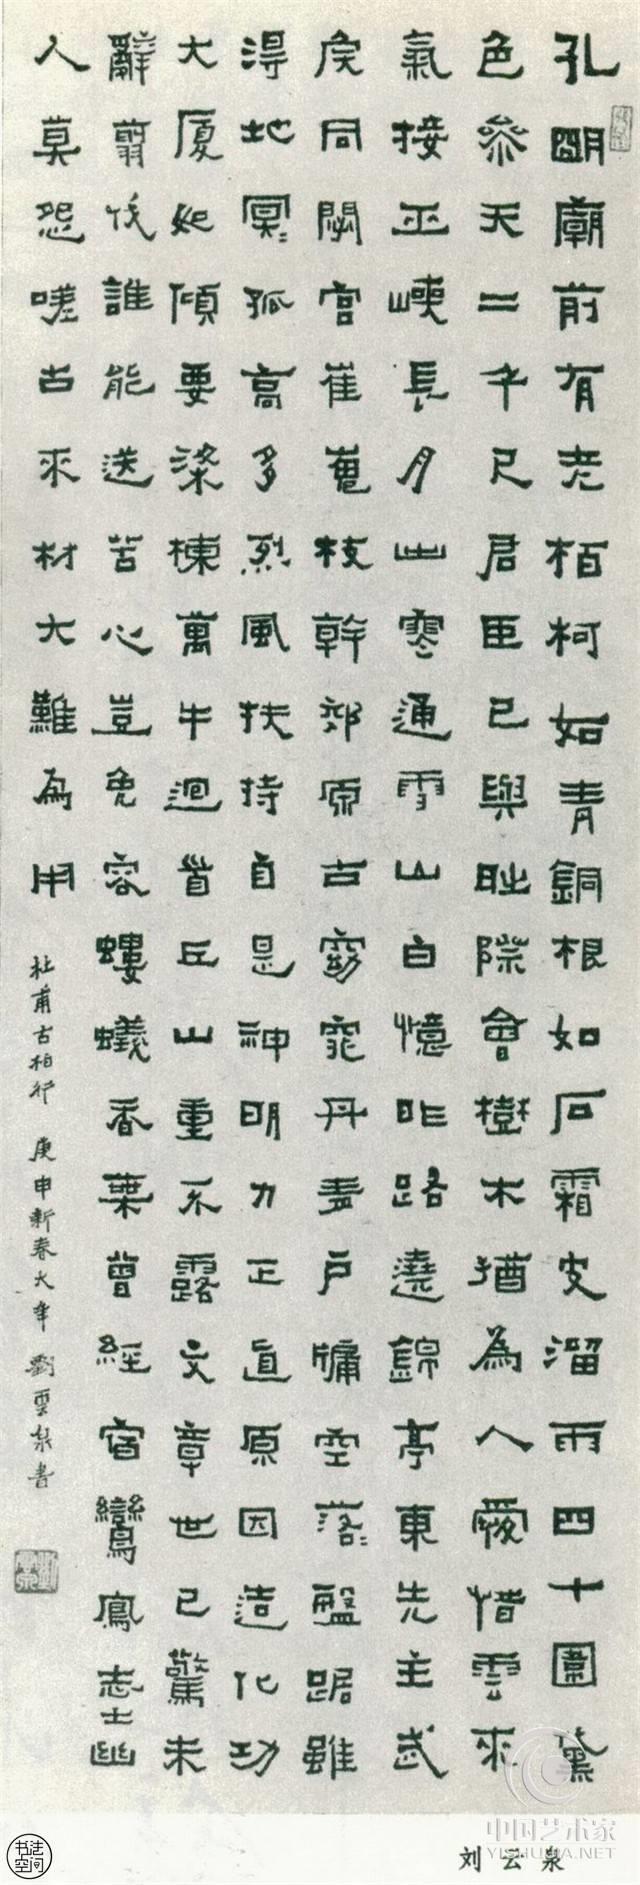 孔明廟前有老柏柯如青銅根如石霜皮溜雨四十圍黛
色參天二千尺君臣已與時際會樹木猶為人愛惜雲來
氣接巫峽長月出寒通雪山白憶昨路遶錦亭東先主武
侯同閟宮崔嵬枝幹郊原古窈窕丹青戶牖空落〻盤踞雖
得地冥〻孤高多烈風扶持自是神明力正直原因造化功
大厦如傾要梁棟萬牛迴首丘山重不露文章世已驚未
辭翦伐誰能送苦心豈免容螻蟻香葉曾經宿鸞鳳志士幽
人莫怨嗟古來材大難為用
杜甫古柏行 庚申新春大年 劉雲泉書
刘云泉
中国艺术家
YISHUJIA.COM
书法空间